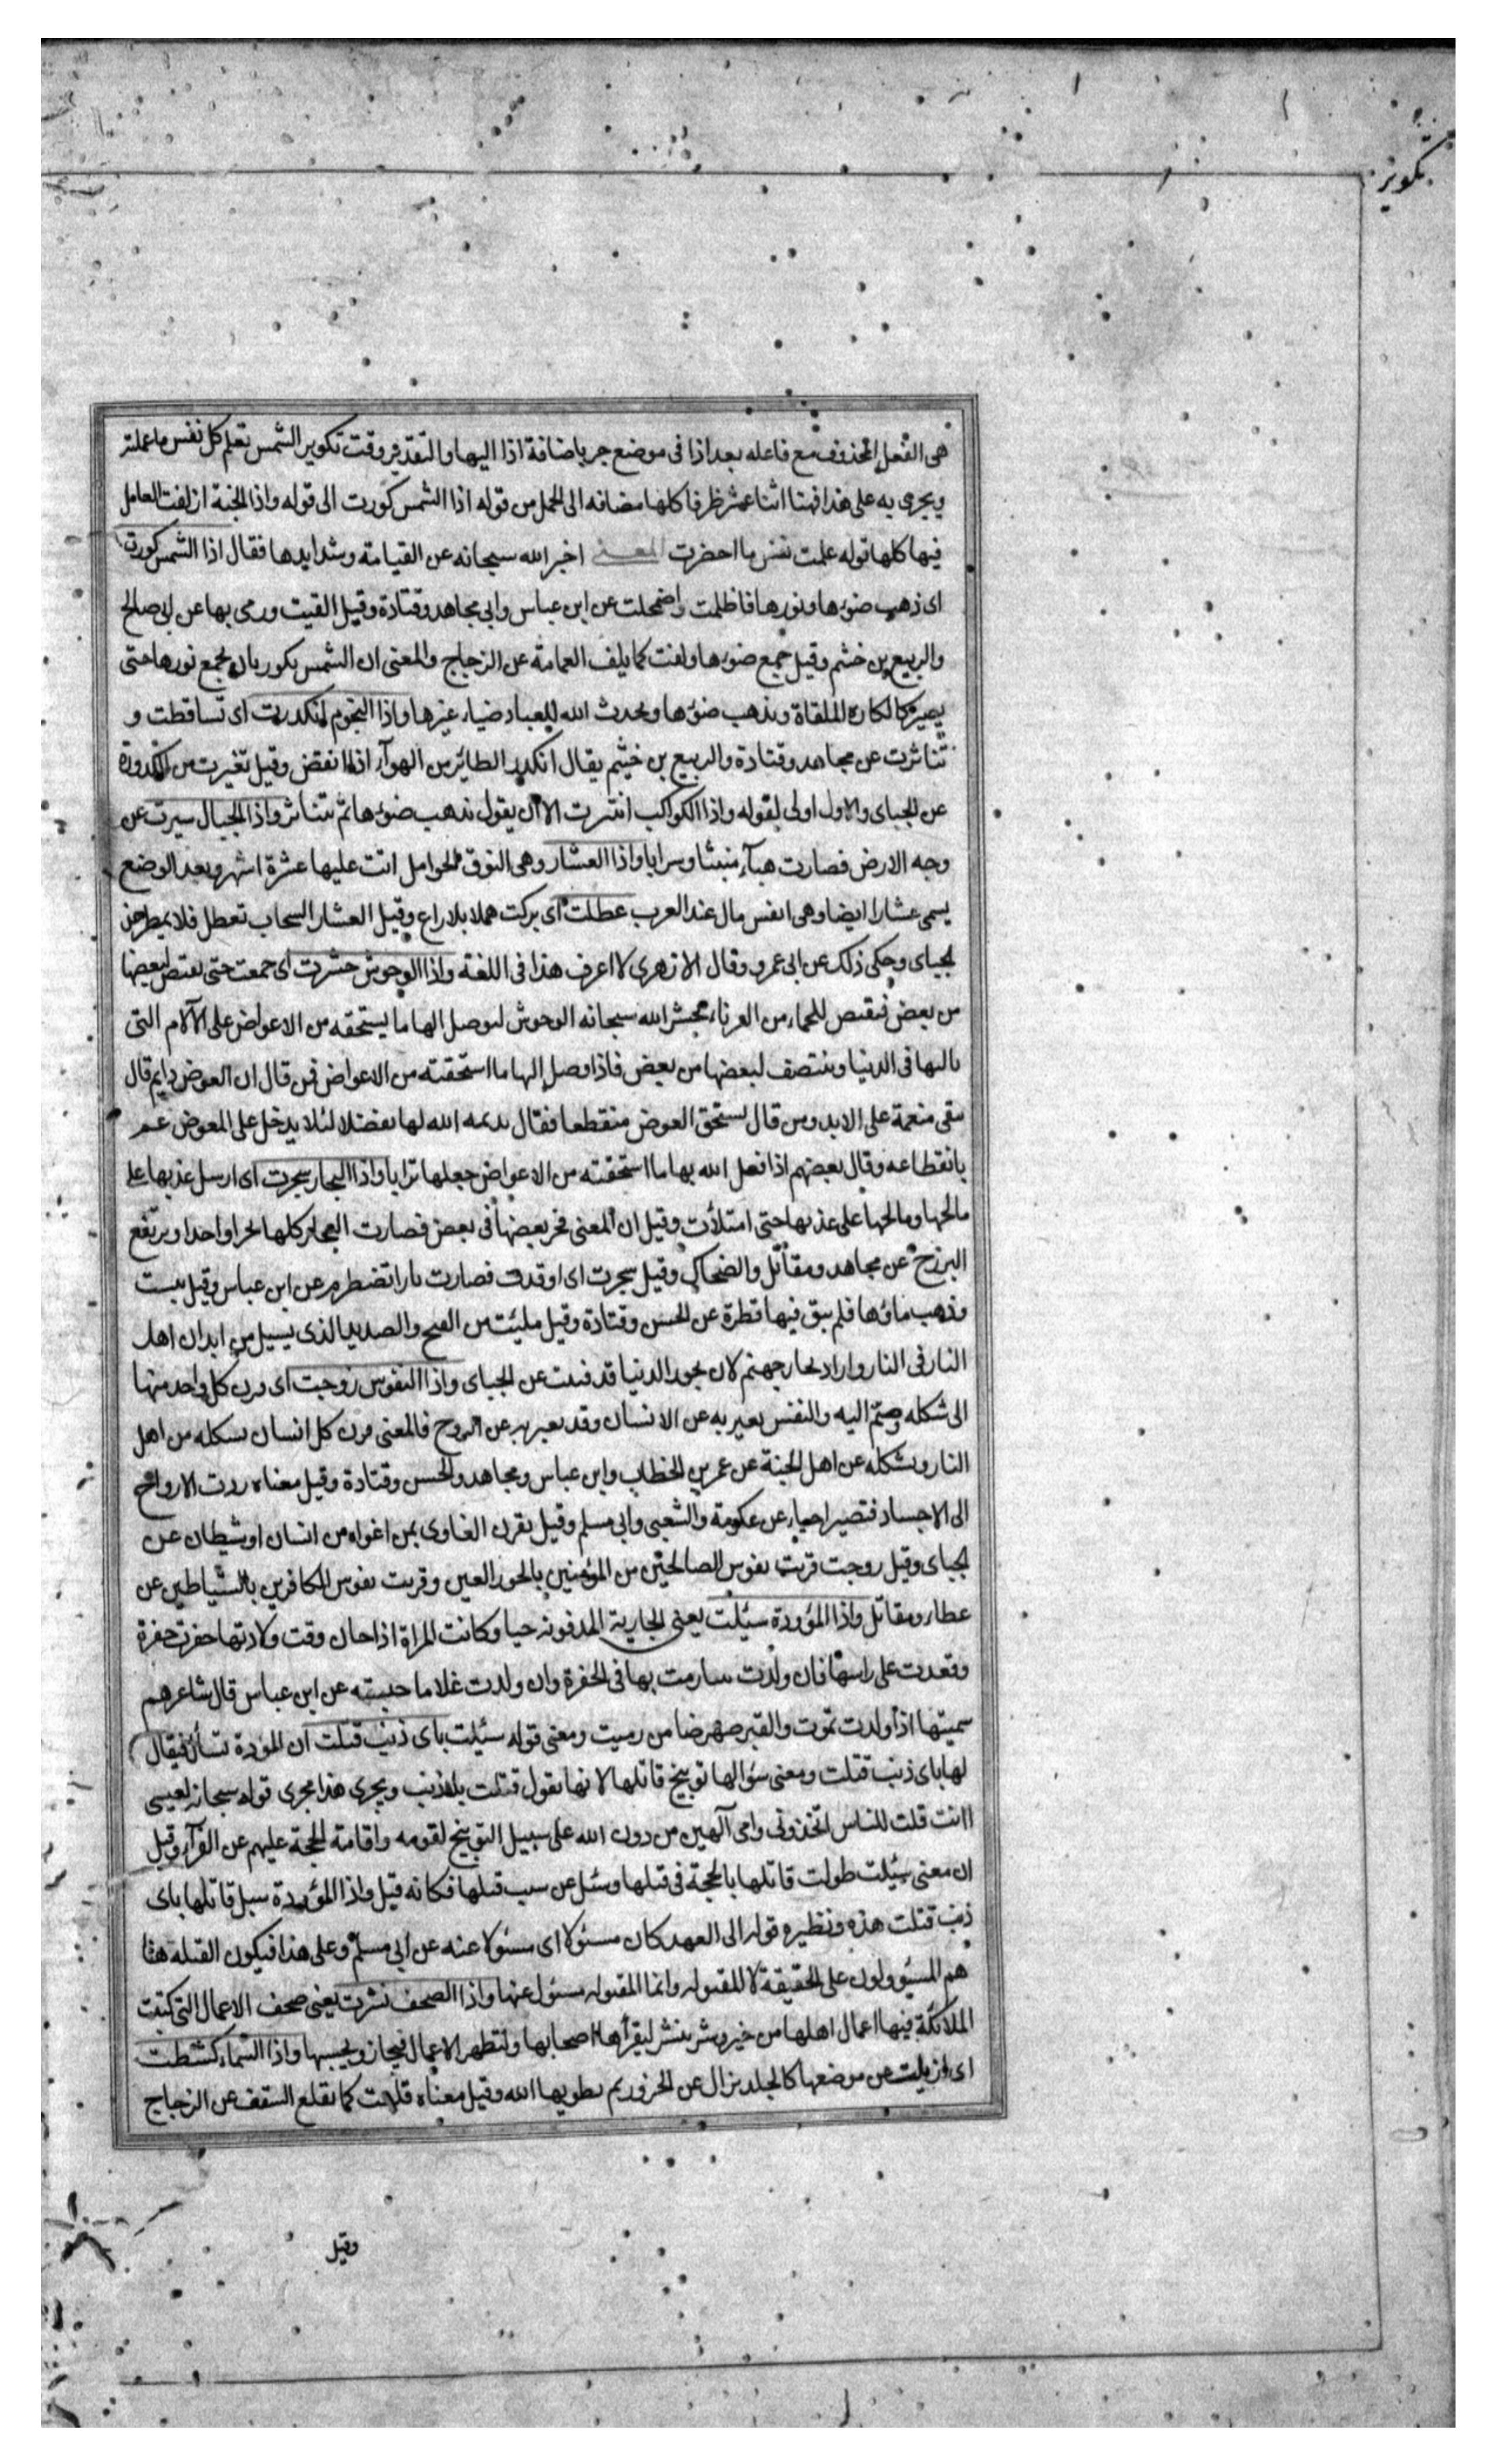 تكوير
هى الفعل المحذوف مع فاعله بعد اذا فى موضع جر باضافة اذا اليها والتقدير وقت تكوير الشمس تعلم كل نفس ما عملته
ويجرى به على هذا فهنا اثنا عشر ظرفا كلها مضافه الى الجمل من قوله اذا الشمس كورت الى قوله واذا الجنة ازلفت العامل
فيها كلها قوله علمت نفس ما احضرت المعنى اخبر الله سبحانه عن القيامة وشدايدها فقال اذا الشمس كورت
اى ذهب ضوءها ونورها فاظلمت واضمحلت عن ابن عباس وابى مجاهد وقتادة وقيل القيت ورمى بها عن ابى صالح
والربيع بن خثيم وقيل جمع ضوءها ولفت كما يلف العمامة عن الزجاج والمعنى ان الشمس يكور بان يجمع نورها حتى
يصير كالكارة الملقاة ويذهب ضوءها ويحدث الله للعباد ضياء غيرها واذا النجوم انكدرت اى تساقطت و
تناثرت عن مجاهد وقتادة والربيع بن خثيم يقال انكدر الطائر من الهوآء اذا انقض وقيل تغيرت من الكدورة
عن الجباى والاول اولى لقوله واذا الكواكب انتثرت الا ان يقول يذهب ضوءها ثم تتناثر واذا الجبال سيرت عن
وجه الارض فصارت هبآء منبثا وسرابا واذا العشار وهى النوق الحوامل اتت عليها عشرة اشهر وبعد الوضع
يسمى عشارا ايضا وهى انفس مال عند العرب عطلت اى تركت هملا بلا راع وقيل العشار السحاب تعطل فلا يمطر عن
الجباى وحكى ذلك عن ابى عمرو وقال الازهرى لا اعرف هذا فى اللغة واذا الوحوش حشرت اى جمعت حتى يقتص لبعضها
من بعض فيقتص للجماء من القرناء يحشر الله سبحانه الوحوش ليوصل اليها ما يستحقه من الاعواض على الآلام التى
نالتها فى الدنيا وينتصف لبعضها من بعض فاذا وصل اليها ما استحقته من الاعواض فمن قال ان العوض دايم قال
تبقى منعمة على الابد ومن قال يستحق العوض منقطعا فقال يديمه الله لها تفضلا لئلا يدخل على المعوض غم
بانقطاعه وقال بعضهم اذا فعل الله بها ما استحقته من الاعواض جعلها ترابا واذا البحار سجرت اى ارسل عذبها على
مالحها ومالحها على عذبها حتى امتلأت وقيل ان المعنى فجر بعضها فى بعض فصارت البحار كلها بحرا واحدا ويرتفع
البرزخ عن مجاهد ومقاتل والضحاك وقيل سجرت اى اوقدت فصارت نارا تضطرم عن ابن عباس وقيل يبست
وذهب ماؤها فلم يبق فيها قطرة عن الحسن وقتادة وقيل مليئت من القيح والصديد الذى يسيل من ابدان اهل
النار فى النار واراد بحار جهنم لان بحور الدنيا قد فنيت عن الجباى واذا النفوس زوجت اى قرن كل واحد منها
الى شكله وضم اليه والنفس يعبر به عن الانسان وقد يعبر به عن الروح فالمعنى قرن كل انسان بشكله من اهل
النار وبشكله عن اهل الجنة عن عمر بن الخطاب وابن عباس ومجاهد والحسن وقتادة وقيل معناه ردت الارواح
الى الاجساد فتصير احياء عن عكرمة والشعبى وابى مسلم وقيل يقرن الغاوى بمن اغواه من انسان او شيطان عن
الجباى وقيل زوجت قرنت نفوس الصالحين من المؤمنين بالحور العين وقرنت نفوس الكافرين بالشياطين عن
عطاء ومقاتل واذا المؤودة سئلت يعنى الجارية المدفونه حيا وكانت المراة اذا حان وقت ولادتها حفرت حفرة
وقعدت على راسها فان ولدت بنتا رمت بها فى الحفرة وان ولدت غلاما حبسته عن ابن عباس قال شاعرهم
سميتها اذ ولدت تموت والقبر صهر ضامن زميت ومعنى قوله سئلت باى ذنب قتلت ان المؤدة تسأل فيقال
لها باى ذنب قتلت ومعنى سؤالها توبيخ قاتلها لانها تقول قتلت بلا ذنب ويجرى هذا مجرى قوله سبحانه لعيسى
اانت قلت للناس اتخذونى وامى آلهين من دون الله على سبيل التوبيخ لقومه واقامة الحجة عليهم عن الفرآء وقيل
ان معنى سئلت طولبت قاتلها بالحجة فى قتلها وسئل عن سبب قتلها فكانه قيل واذا المؤودة سيل قاتلها باى
ذنب قتلت هذه ونظيره قوله الى العهد كان مسئولا اى مسئولا عنه عن ابى مسلم وعلى هذا فيكون القتلة هنا
هم المسئوولون على الحقيقة لا المقتوله وانما المقتوله مسئول عنها واذا الصحف نشرت يعنى صحف الاعمال التى كتبت
الملائكة فيها اعمال اهلها من خير وشر ينشر ليقرأها اصحابها ولتظهر الاعمال فيجازو بحسبها واذا السماء كشطت
اى ازيلت عن موضعها كالجلد يزال عن الجزور ثم يطويها الله وقيل معناه قلعت كما يقلع السقف عن الزجاج
وقيل